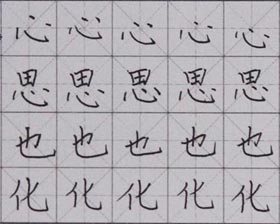 心心心心心
思思思思思
也也也也也
化化化化化